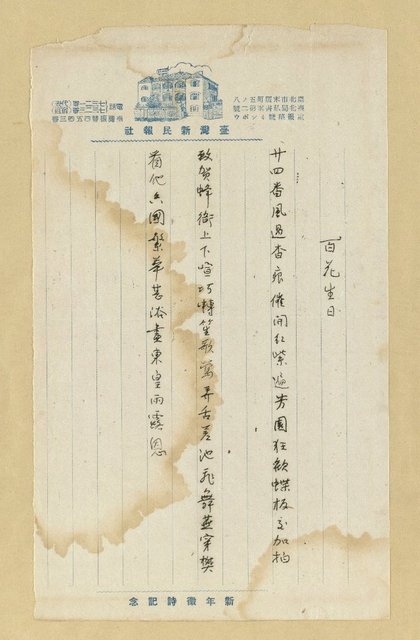 臺北市末廣町五ノ八
臺灣新民報社
百花生日
廿四番風過杳痕催開紅紫遍芳園狂歡蝶板交加拍
致賀蜂衙上下喧巧囀笙歌鶯弄舌差池飛舞燕穿樊
國繁華甚浴盡東皇雨露恩
新年徵詩記念